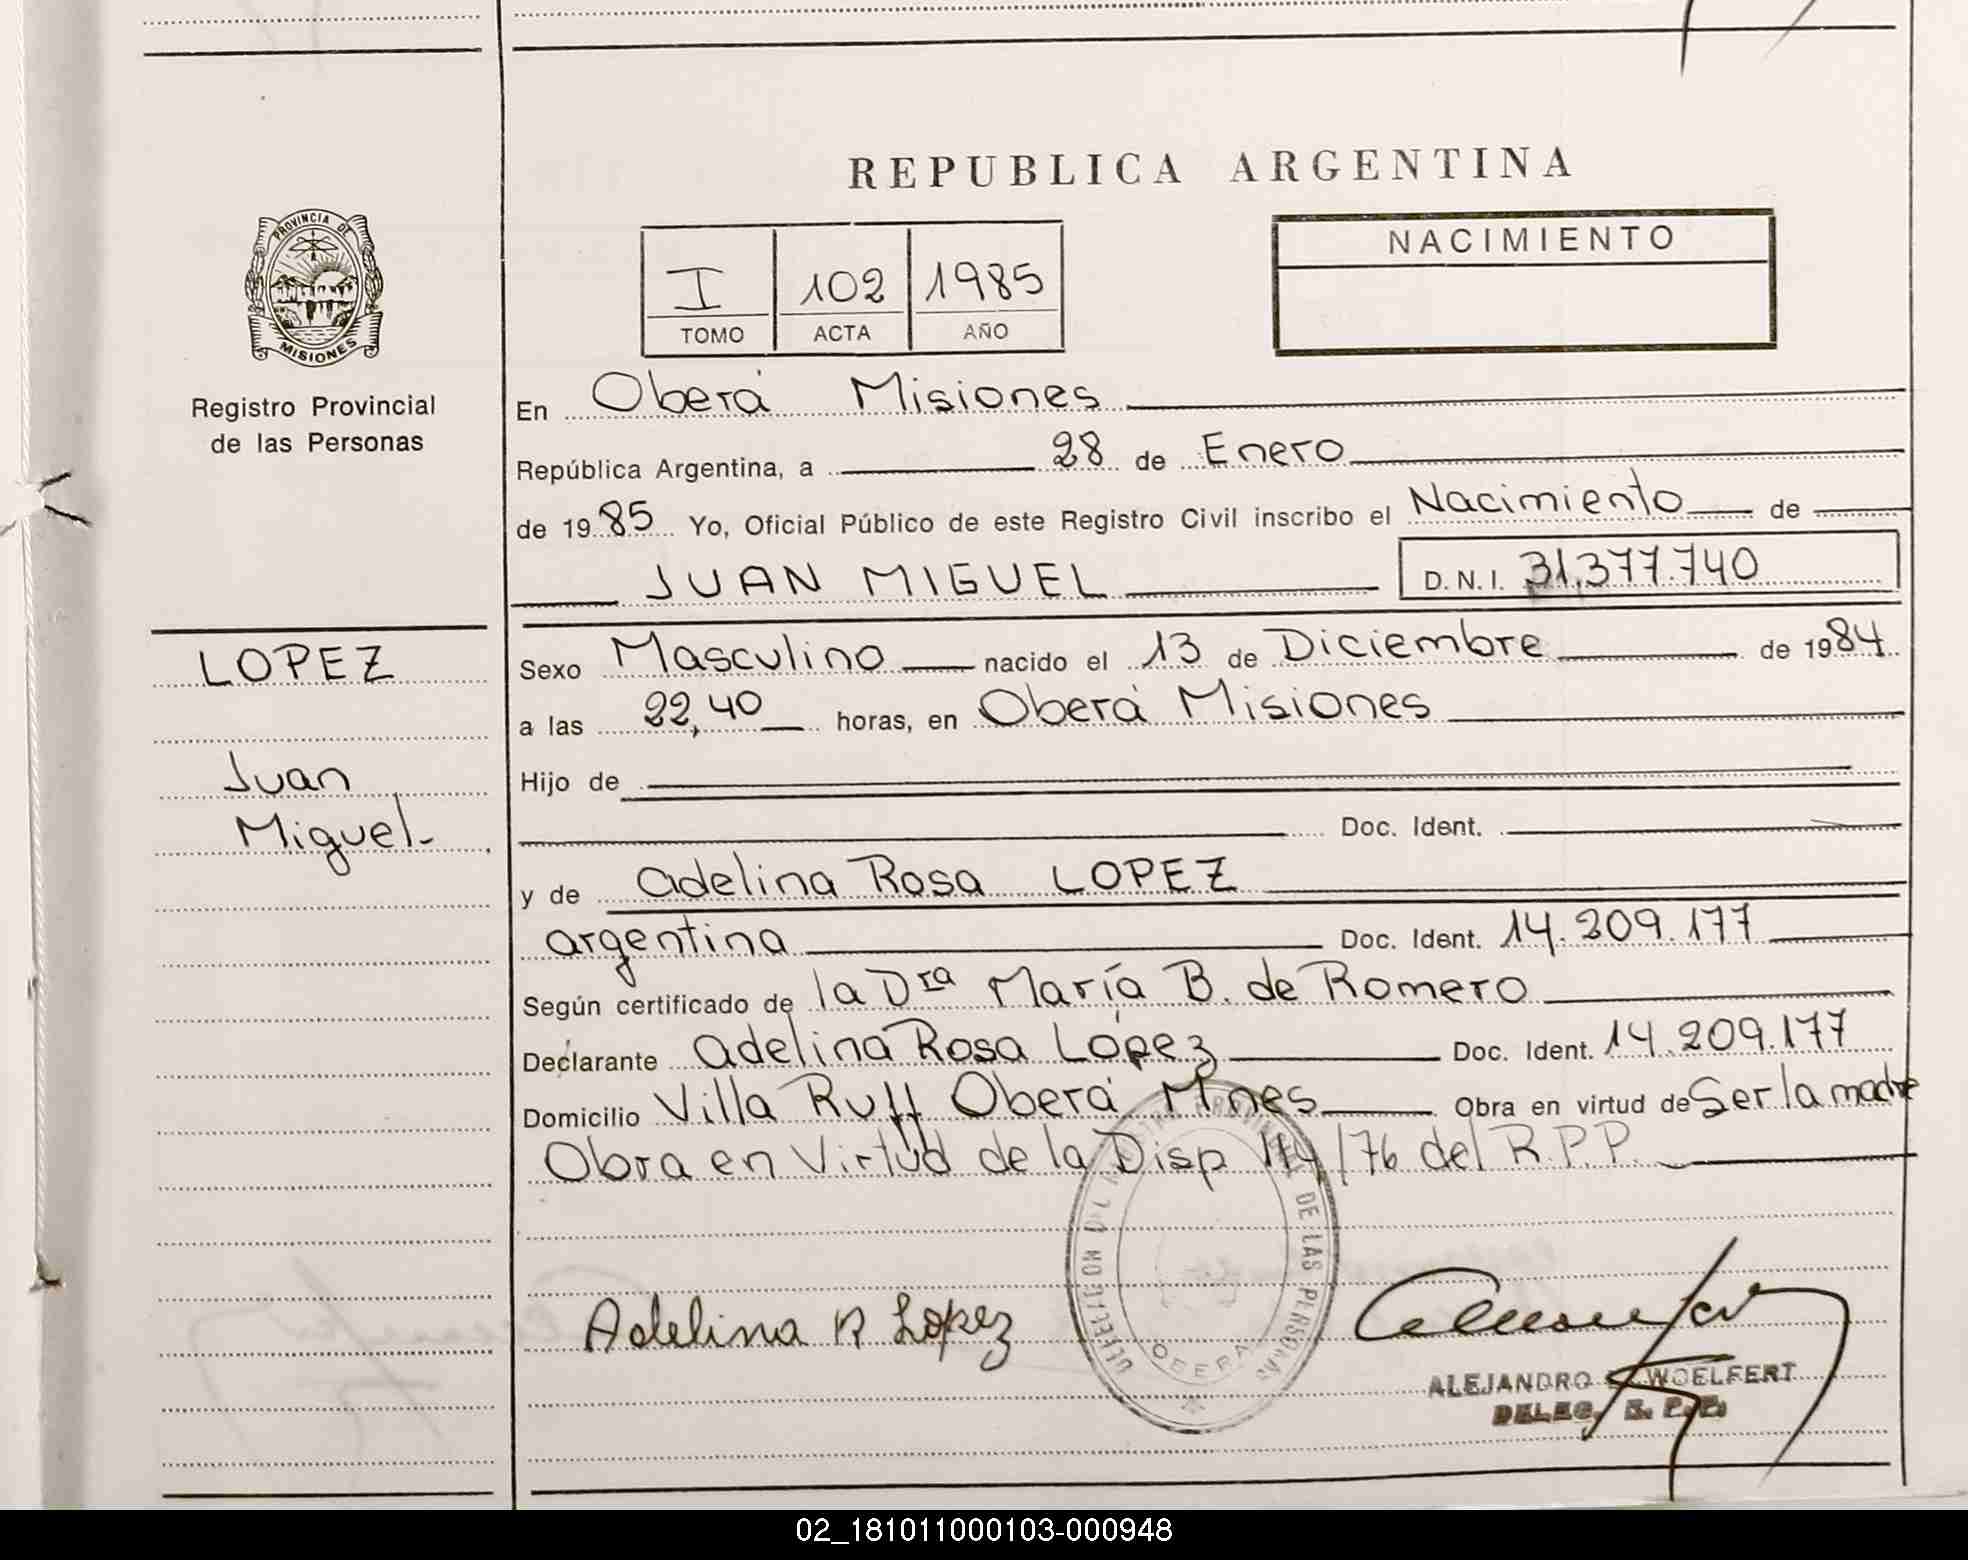 REPUBLICA ARGENTINA
PROVINCIA DE
MISIONES
Registro Provincial
de las Personas
I 102 1985
TOMO ACTA AÑO
NACIMIENTO
En Oberá Misiones
República Argentina, a 28 de Enero
de 1985 Yo, Oficial Público de este Registro Civil inscribo el Nacimiento de
JUAN MIGUEL D.N.I. 31.377.740
LOPEZ
Juan
Miguel
Sexo Masculino nacido el 13 de Diciembre de 1984
a las 22,40 horas, en Oberá Misiones
Hijo de
Doc. Ident.
y de Adelina Rosa LOPEZ
argentina Doc. Ident. 14.209.177
Según certificado de la Dra María B. de Romero
Declarante Adelina Rosa López Doc. Ident. 14.209.177
Domicilio Villa Ruff Oberá Mnes Obra en virtud de Ser la madre
Obra en Virtud de la Disp 114/76 del R.P.P.
DE LAS PERSONAS
OBERA
Adelina R Lopez
ALEJANDRO WOELFERT
DELEG. R. P. P.
02_181011000103-000948